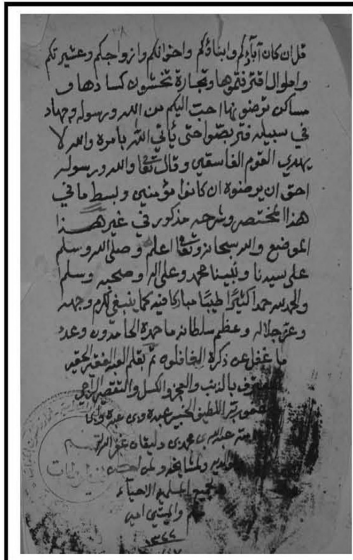 قل ان كان آباؤكم وابناؤكم واخوانكم وازواجكم وعشيرتكم
واموال اقترفتموها وتجارة تخشون كسادها و
مساكن ترضونها احب اليكم من الله ورسوله وجهاد
في سبيله فتربصوا حتى يأتي الله بامره والله لا
يهدي القوم الفاسقين وقال تعا والله ورسوله
احق ان يرضوه ان كانوا مؤمنين وبسط ما في
هذا المختصر وشرحه مذكور في غير هذا
الموضع والله سبحانه وتعا اعلم وصلى الله وسلم
على سيدنا ونبينا محمد وعلى اله وصحبه وسلم
والحمد لله حمدا كثيرا طيبا مباركا فيه كما ينبغي لكرم وجهه
وعز جلاله وعظم سلطانه ما حمده الحامدون وعدد
ما غفل عن ذكره الغافلون تم بقلم العبد الفقير الحقير
بالذنب والعجز والكسل والتقصير
اللطيف الخبير عبده وبن عبده
ولمشايخه
ولجميع المسلمين الاحياء
منهم والميتين امين
١٣٢٢